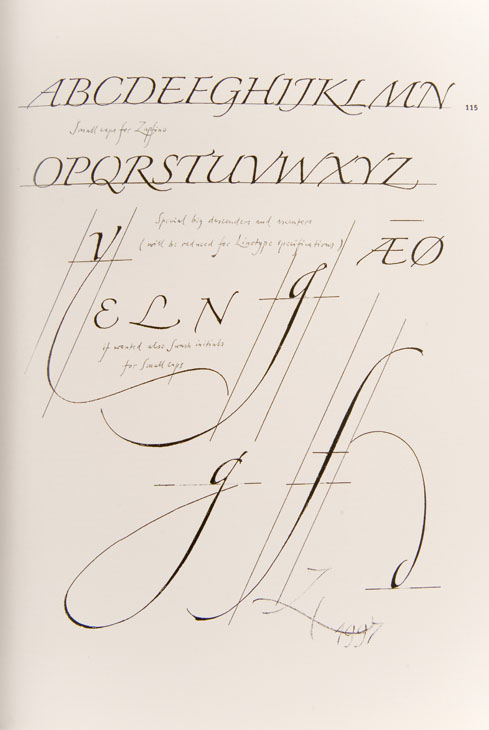 ABCDEFGHIJKLMN
115
Small caps for Zapfino
OPQRSTUVWXYZ
Special big descenders and ascenders
(will be reduced for Linotype specifications)
y
g
ÆØ
E L N
if wanted also Swash initials
for Small caps
g
f
h
Z
1997